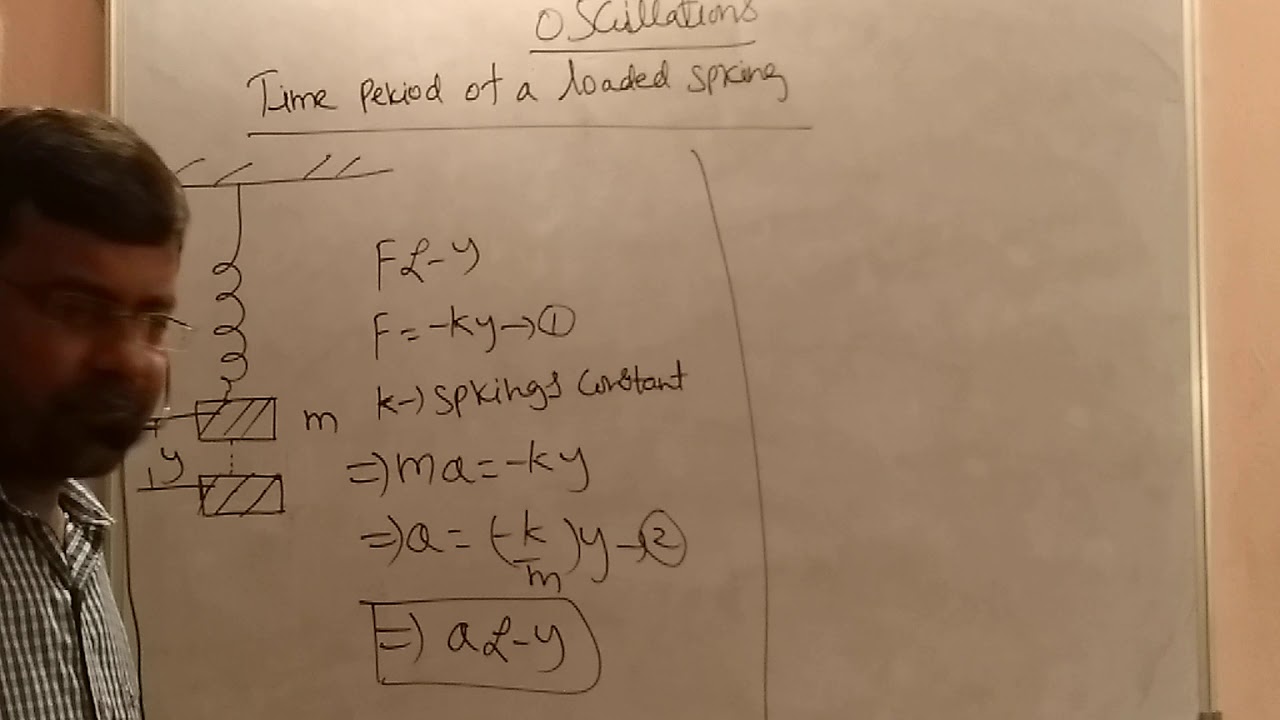 Oscillations
Time period of a loaded spring
F ∝ -y
F = -ky → ①
k → springs constant
m
⇒ ma = -ky
y
⇒ a = (-k/m)y → ②
⇒ a ∝ -y